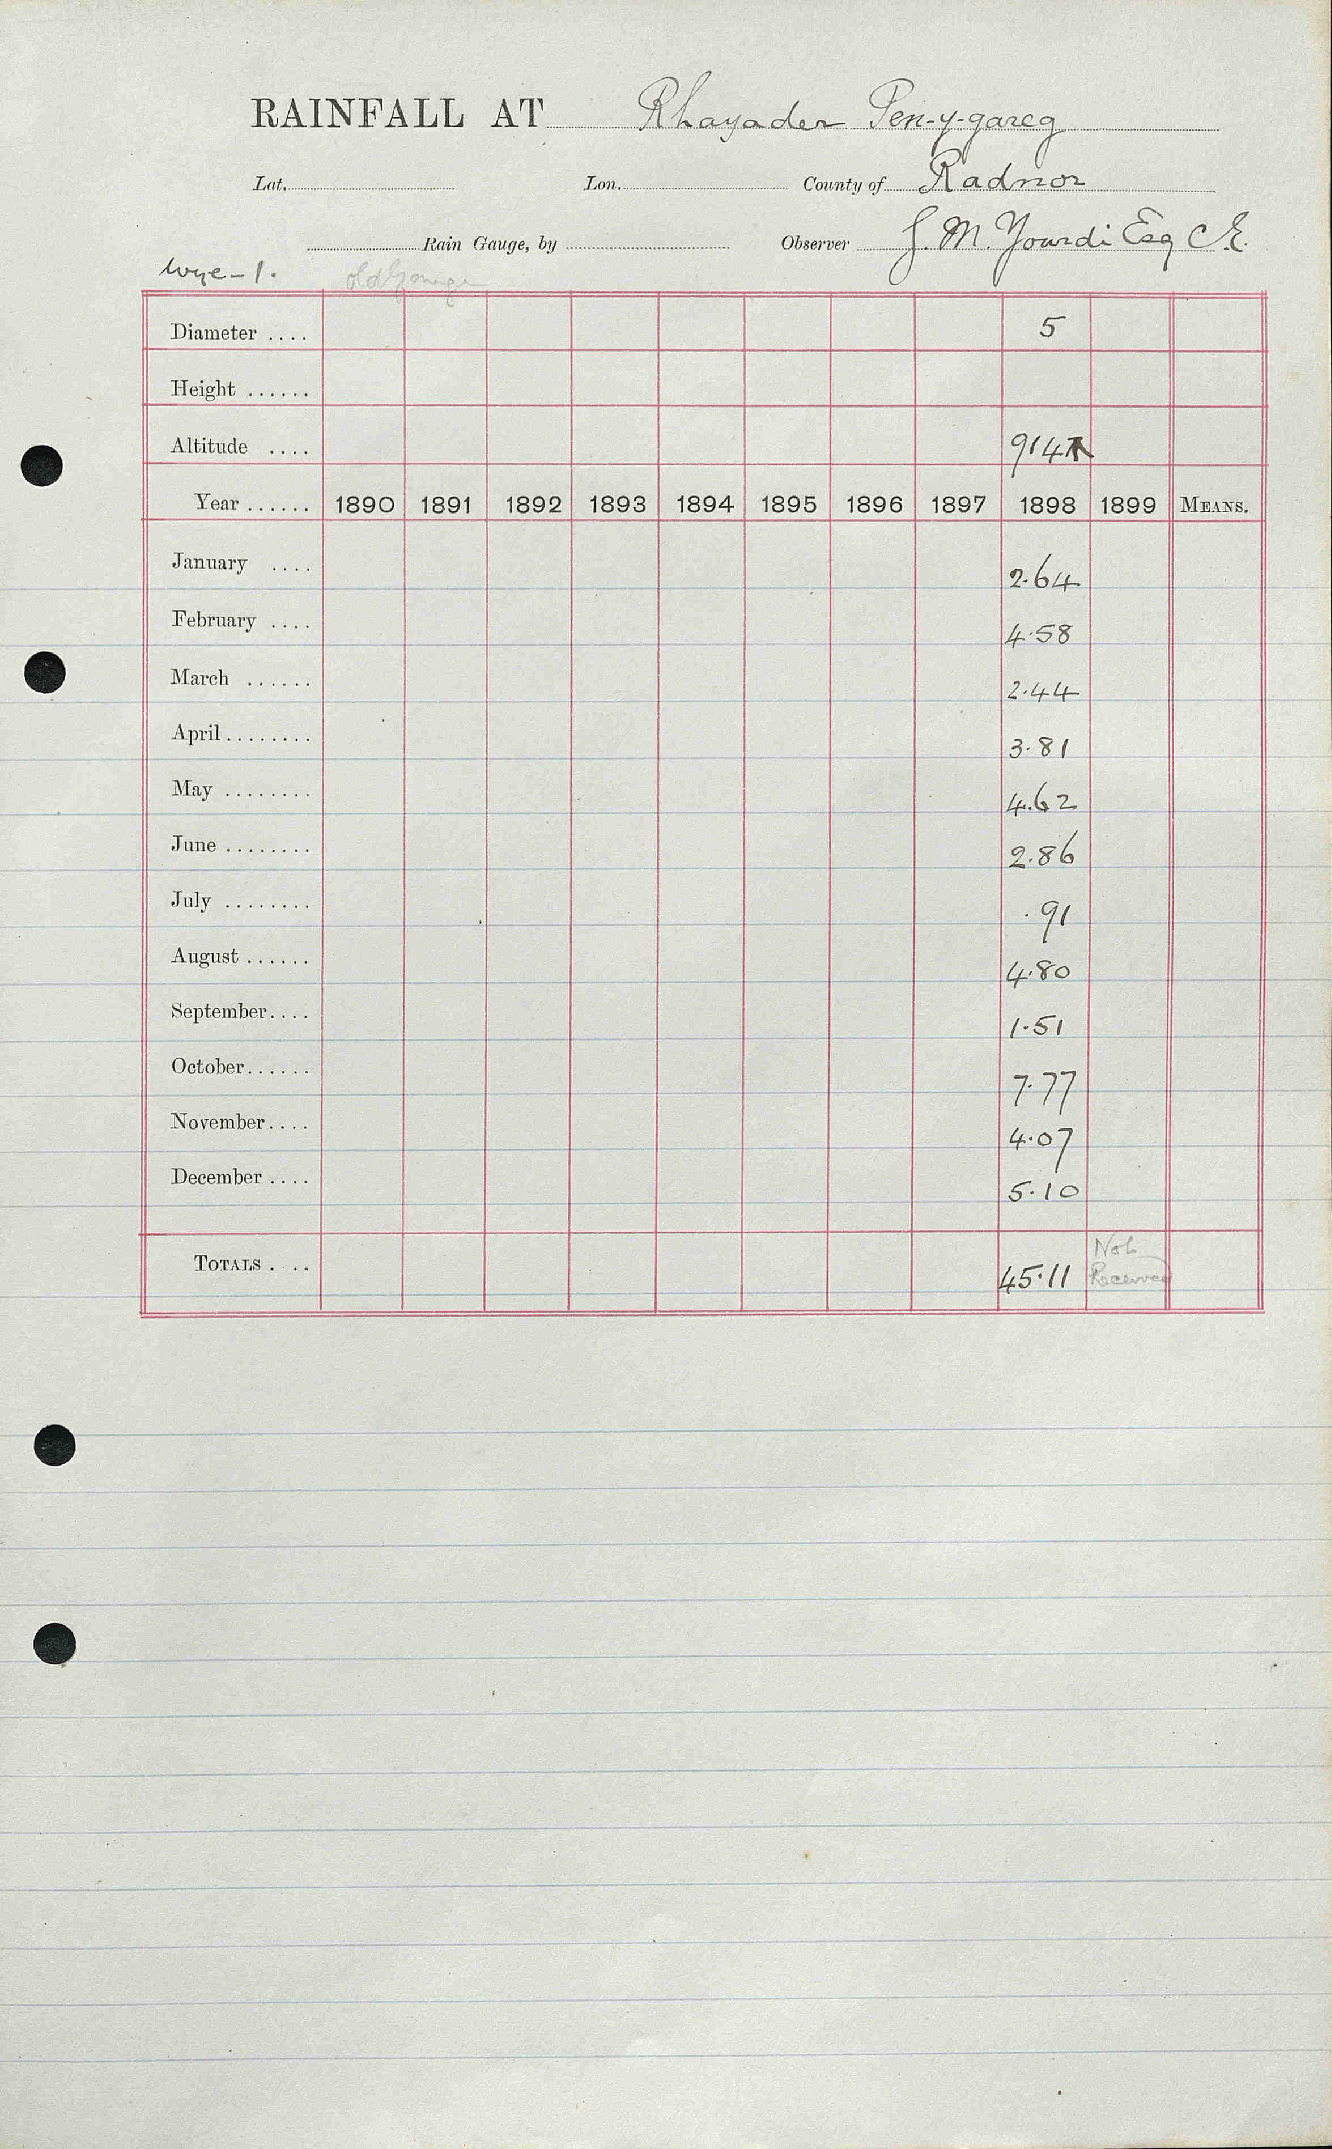 RAINFALL AT Rhayader Pen-y-gareg
Lat. Lon. County of Radnor
Rain Gauge, by Observer G. M. Yourdi Esq C.E.
Wye-1. old Gauge
Diameter .... 5
Height ......
Altitude .... 914
Year ...... 1890 1891 1892 1893 1894 1895 1896 1897 1898 1899 MEANS.
January .... 2.64
February .... 4.58
March ...... 2.44
April ........ 3.81
May ........ 4.62
June ........ 2.86
July ........ .91
August ...... 4.80
September.... 1.51
October...... 7.77
November.... 4.07
December .... 5.10
TOTALS . .. 45.11 Not
Received